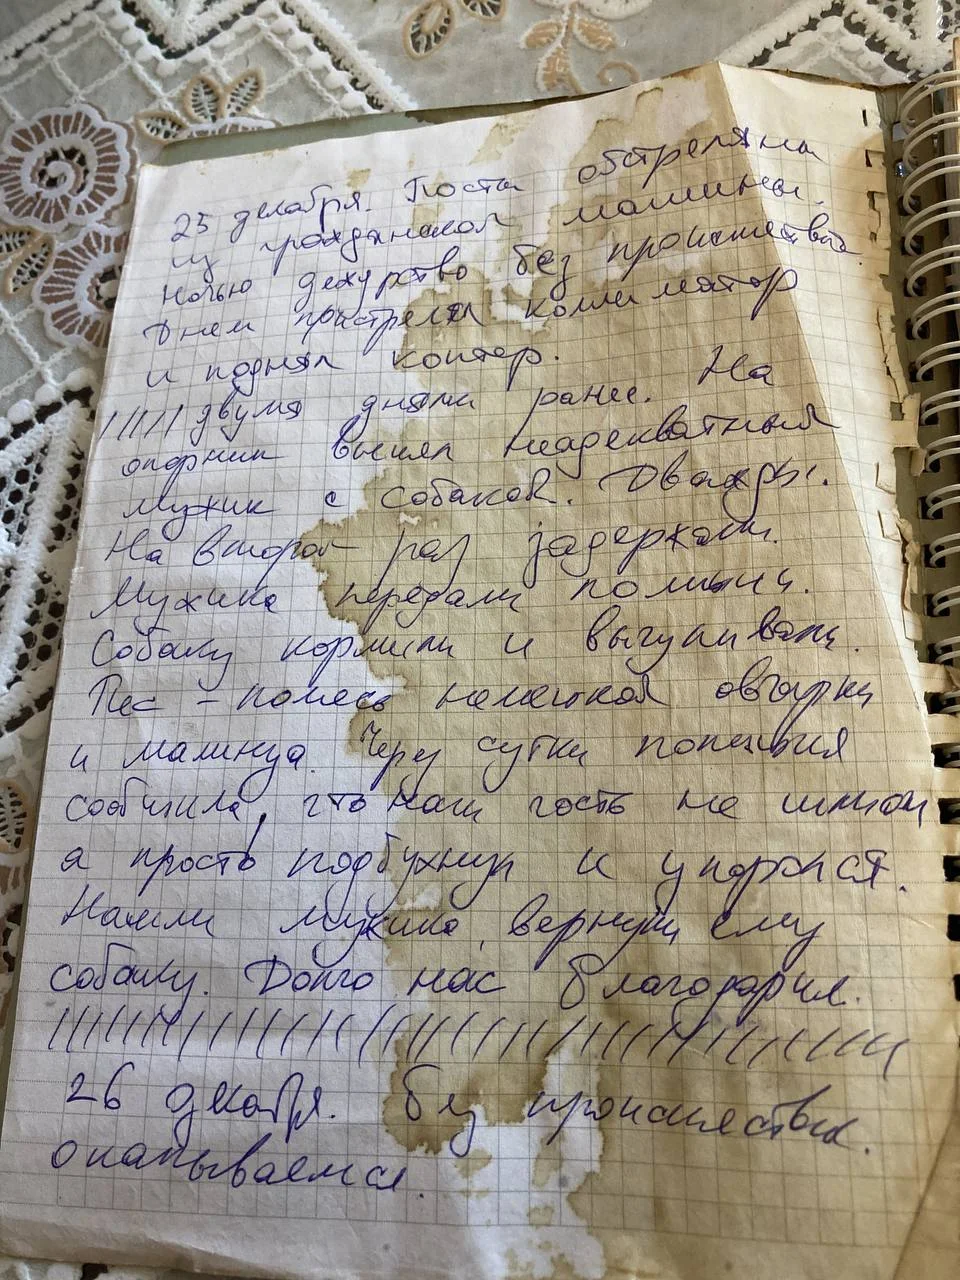 25 декабря. Посты обстреляны
из гражданской машины.
Ночью дежурство без происшествий.
Днем пристрелял коллиматор
и поднял коптер.
///// двумя днями ранее. На
опорник вышел неадекватный
мужик с собакой. Дважды.
На второй раз задержали.
Мужика передали полиции.
Собаку кормили и выгуливали.
Пес - помесь немецкой овчарки
и малинуа. Через сутки полиция
сообщила, что наш гость не шпион
а просто подбухнул и упоролся.
Нашли мужика, вернули ему
собаку. Долго нас благодарил.
//////////////////////////////////////
26 декабря. Без происшествий.
окапываемся.